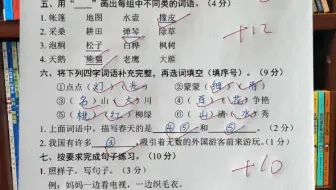 五、用“＿＿”画出每组中不同类的词语。(4分)
1.帐篷 地图 水壶 橡皮
2.采桑 耕田 弹琴 除草
3.泡桐 松子 白桦 枫树
4.天鹅 熊猫 老鹰 大雁
+12
六、将下列四字词语补充完整，再选词填空(填序号)。(9分)
①点点(灯)(光) ②蒙蒙(细)(雨)
③(名)山(大)川 ④(百)(花)争艳
⑤(桃)红(柳)绿 ⑥(山)清(水)秀
1.上面词语中，描写春天的是 ④ ⑤ 和 ②。
2.我国有许多 ③，吸引着无数的外国游客前来游玩。(1分)
+10
七、按要求完成句子练习。(10分)
1.照样子，写句子。(3分)
例：妈妈一边看电视，一边织毛衣。